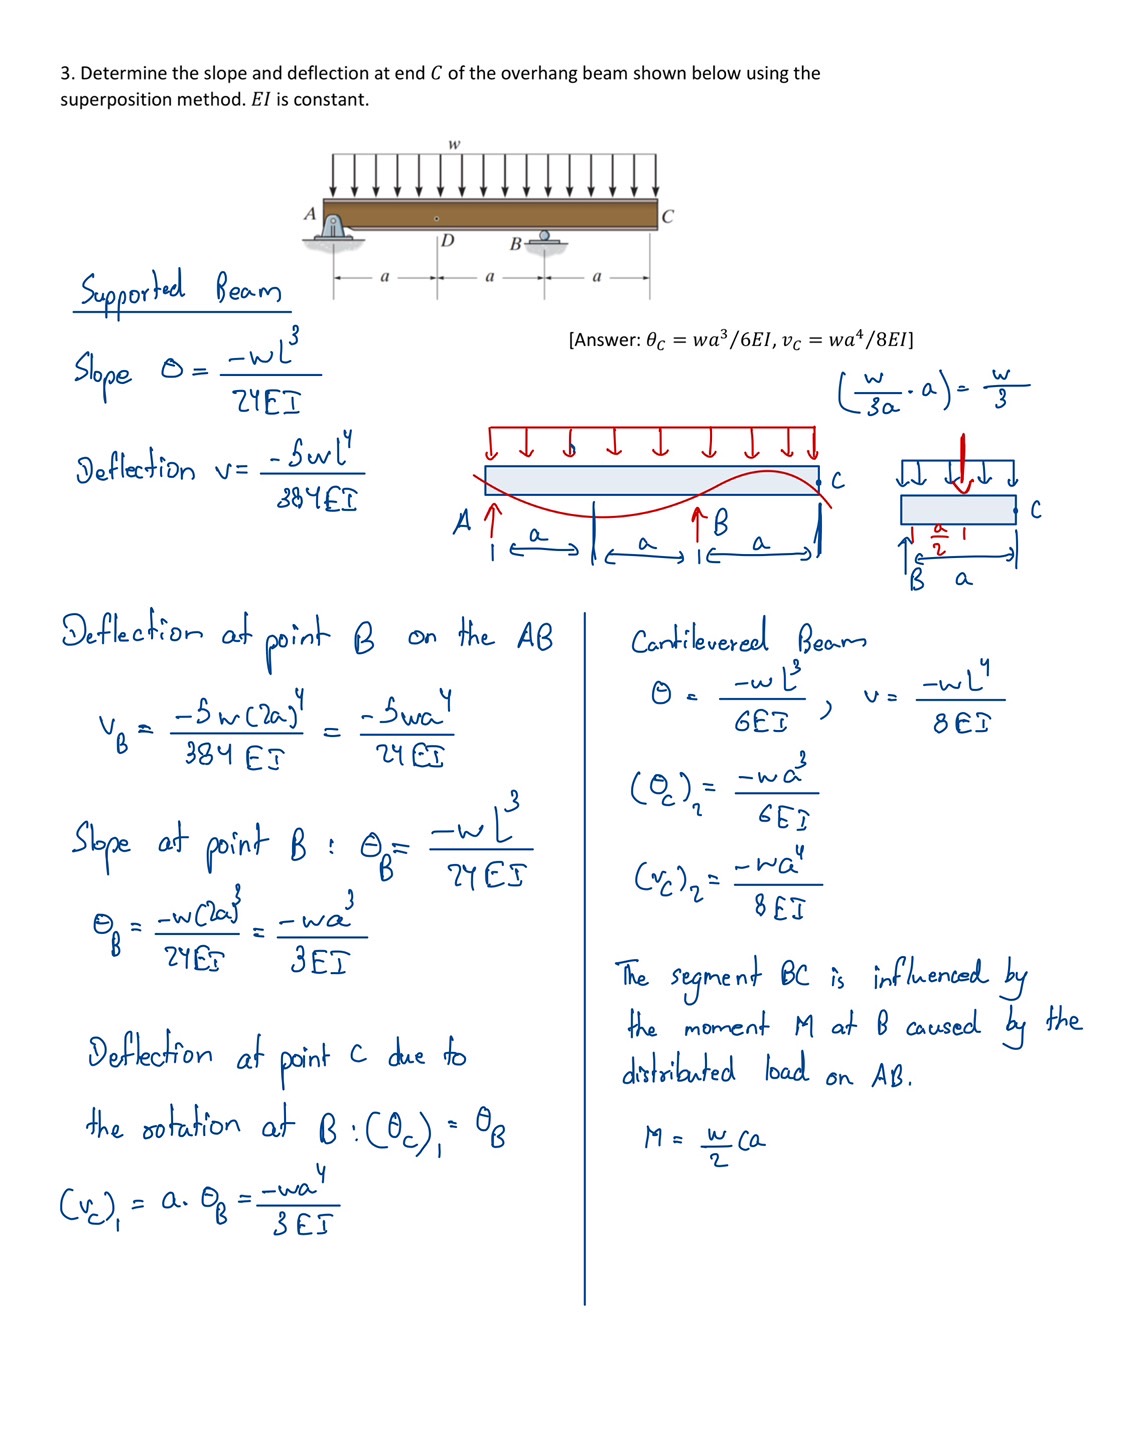 3. Determine the slope and deflection at end C of the overhang beam shown below using the
superposition method. EI is constant.
w
A
C
D
B
a
a
a
Supported Beam
[Answer: θ_C = wa³/6EI, v_C = wa⁴/8EI]
Slope θ = -wL³/24EI
(w/3a · a) = w/3
Deflection v = -5wL⁴/384EI
A
B
C
a
a
a
C
a/2
B
a
Deflection at point B on the AB
v_B = -5w(2a)⁴/384EI = -5wa⁴/24EI
Slope at point B : θ_B = -wL³/24EI
θ_B = -w(2a)³/24EI = -wa³/3EI
Deflection at point C due to
the rotation at B : (θ_C)₁ = θ_B
(v_C)₁ = a. θ_B = -wa⁴/3EI
Cantilevered Beam
θ = -wL³/6EI , v = -wL⁴/8EI
(θ_C)₂ = -wa³/6EI
(v_C)₂ = -wa⁴/8EI
The segment BC is influenced by
the moment M at B caused by the
distributed load on AB.
M = w/2 (a